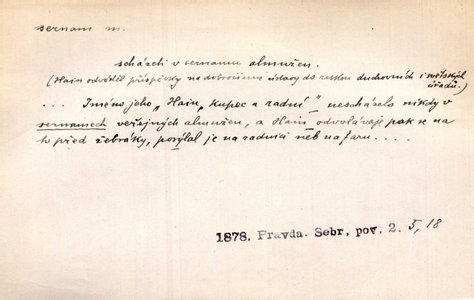 seznam m.
scházeti v seznamu almužen.
(Hain odváděl příspěvky na dobročinné ústavy do rukou duchovních i městských
úřadů.)
... Jméno jeho „Hain, kupec a radní" nescházelo nikdy v
seznamech veřejných almužen, a Hain odvolávaje pak se na
to před žebráky, posýlal je na radnici neb na faru....
1878. Pravda. Sebr, pov. 2. 5, 18